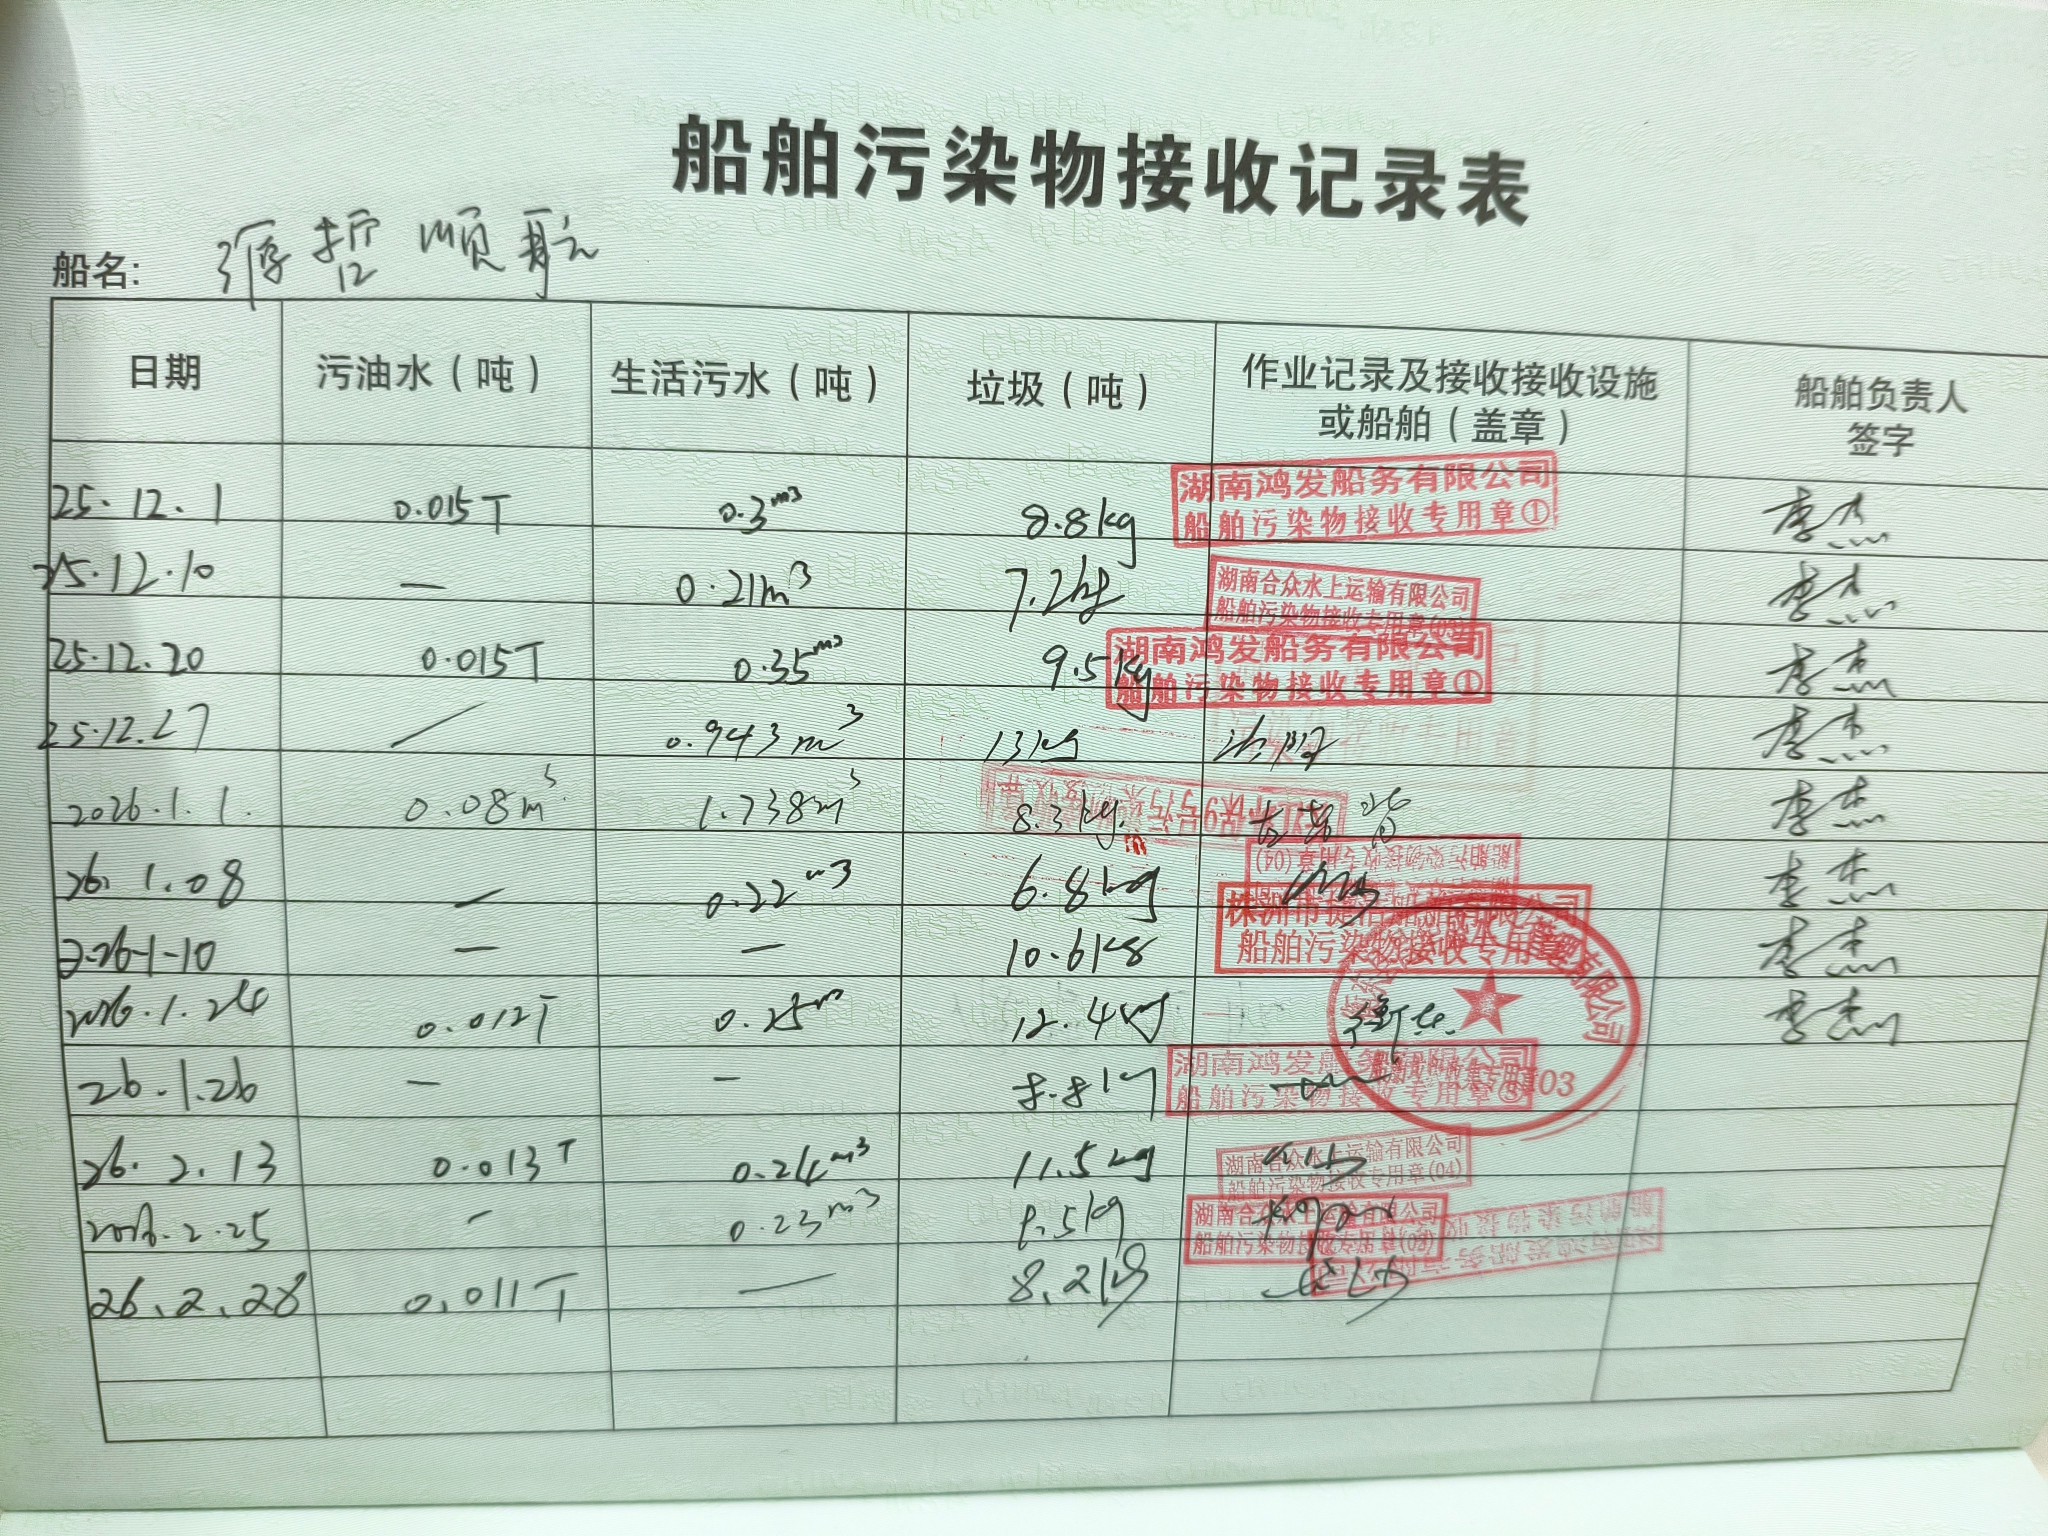 船舶污染物接收记录表
船名: 控顺航
日期 污油水（吨） 生活污水（吨） 垃圾（吨） 作业记录及接收接收设施或船舶（盖章） 船舶负责人签字
25.12.1 0.015T 0.3m³ 8.8kg 湖南鸿发船务有限公司 船舶污染物接收专用章① 李杰
25.12.10 — 0.21m³ 7.2kg 湖南合众水上运输有限公司 船舶污染物接收专用章 李杰
25.12.20 0.015T 0.35m³ 9.5kg 湖南鸿发船务有限公司 船舶污染物接收专用章① 李杰
25.12.27 / 0.943m³ 13kg 李杰
2026.1.1. 0.08m³ 1.738m³ 8.3kg. 李杰
26.1.08 — 0.22m³ 6.8kg 船舶污染物接收专用章(04) 李杰
2026-1-10 — — 10.6kg 船舶污染物接收专用章 李杰
2026.1.24 0.012T 0.25m³ 12.4kg 有限公司 李杰
26.1.26 — — 8.8kg 湖南鸿发船务有限公司 船舶污染物接收专用章
26.2.13 0.013T 0.24m³ 11.5kg 湖南合众水上运输有限公司 船舶污染物接收专用章(04)
2026.2.25 — 0.23m³ 8.5kg 湖南合众水上运输有限公司 船舶污染物接收专用章(03)
26.2.28 0.011T — 8.2kg